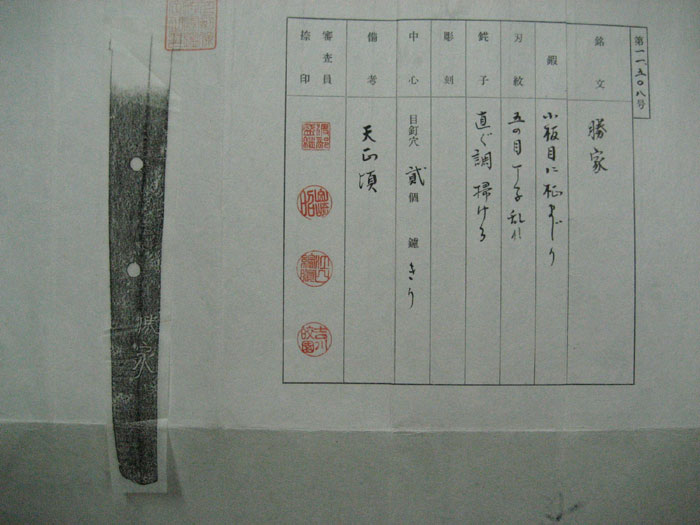 第一一五〇八号
銘文 勝家
鍛 小板目に柾まじり
刃紋 五の目丁子乱れ
鋩子 直ぐ調掃ける
彫刻
中心 目釘穴 貳個 鑢 きり
備考 天正頃
審査員
捺印
勝家